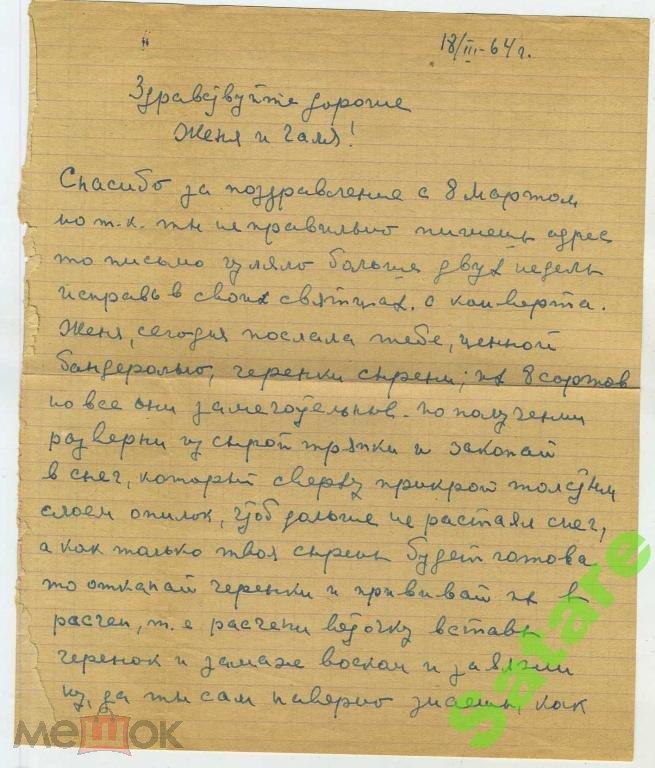 18/III-64 г.
Здравствуйте дорогие
Женя и Галя!
Спасибо за поздравление с 8 мартом
но т.к. ты неправильно пишешь адрес
то письмо гуляло больше двух недель
исправь в своих святцах. с конверта.
Женя, сегодня послала тебе, ценной
бандеролью, черенки сирени; их 8 сортов
но все они замечательные. по получении
разверни из сырой тряпки и закопай
в снег, который сверху прикрой толстым
слоем опилок, чтоб дольше не растаял снег,
а как только твоя сирень будет готова
то откапай черенки и прививай их в
расчеп, т.е расчепи веточку вставь
черенок и замаж воском и завяжи
их, да ты сам наверно знаешь, как
мешок
satare